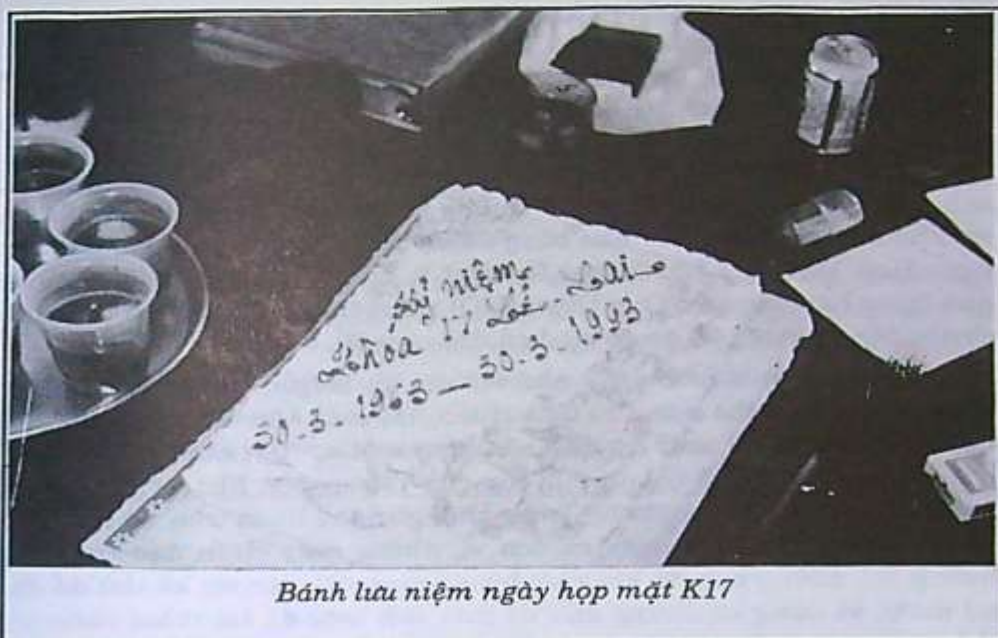 Kỷ niệm
Khóa 17 Lê-Lai
30-3-1963 — 30-3-1993
Bánh lưu niệm ngày họp mặt K17